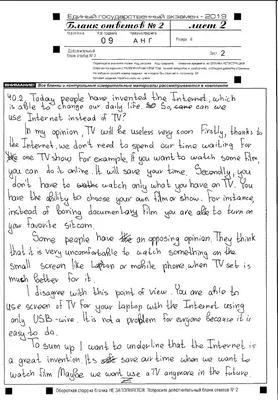 Единый государственный экзамен - 2019
Бланк ответов № 2 лист 2
09 АНГ
Лист 2
ВНИМАНИЕ! Все бланки и контрольные измерительные материалы рассматриваются в комплекте
40.2. Today people have invented the Internet, which
is able to change our daily life. So, some can we
use Internet instead of TV?
In my opinion, TV will be useless very soon. Firstly, thanks to
the Internet, we don't need to spend our time waiting for
one TV show. For example, if you want to watch some film,
you can do it online. It will save your time. Secondly, you
don't have to watch only what you have on TV. You
have the ability to choose your own film or show. For instance,
instead of boring documentary film you are able to turn on
your favorite sitcom.
Some people have an opposing opinion. They think
that it is very uncomfortable to watch something on the
small screen like laptop or mobile phone when TV set is
much better for it.
I disagree with this point of view. You are able to
use screen of TV for your laptop with the Internet using
only USB-wire. It is not a problem for everyone because it is
easy to do.
To sum up I want to underline that the Internet is
a great invention. It save our time when we want to
watch film. Maybe we wont use a TV anymore in the future.
Оборотная сторона бланка НЕ ЗАПОЛНЯЕТСЯ. Попросите дополнительный бланк ответов № 2